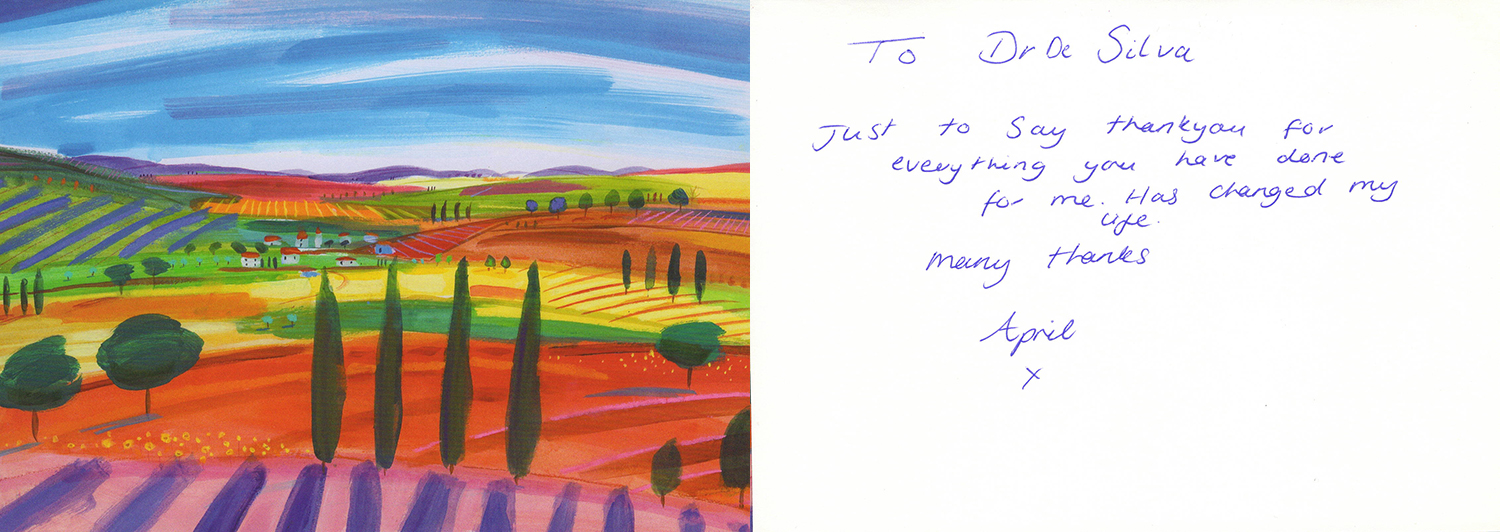 To Dr De Silva
Just to say thankyou for
everything you have done
for me. Has changed my
life.
many thanks
April
x